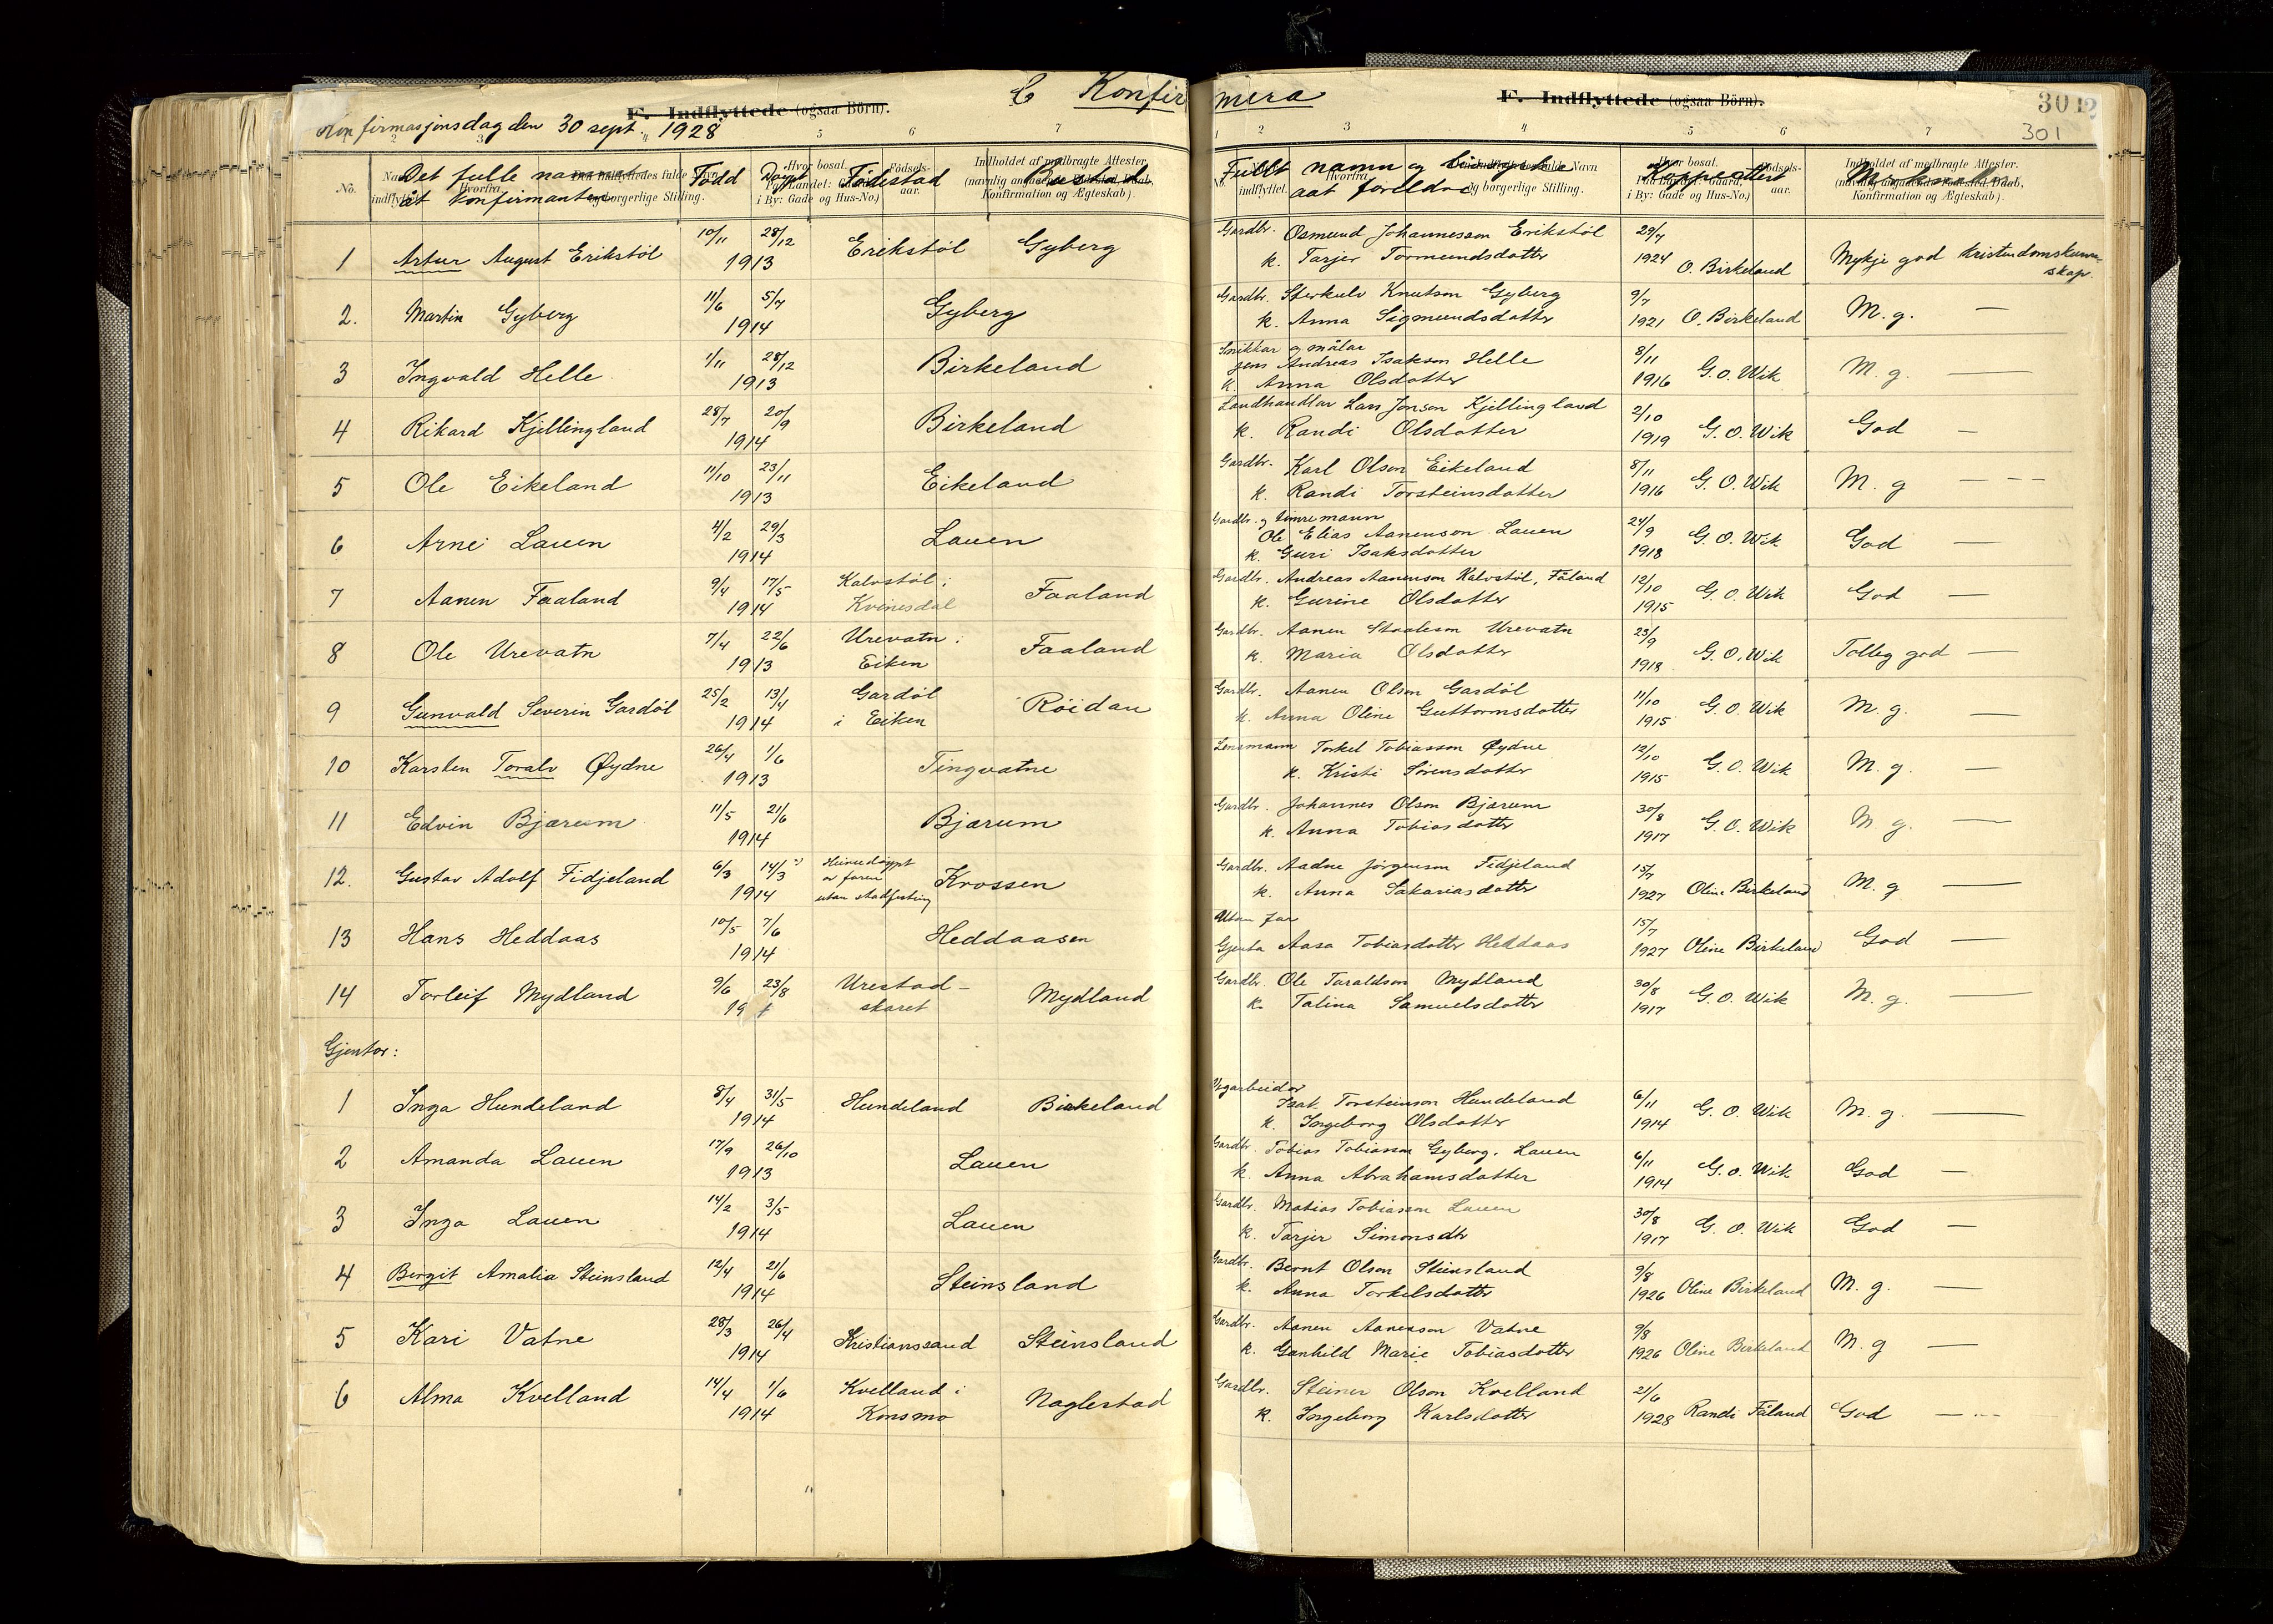 C Konfirmera
F. Indflyttede (ogsaa Börn).
F. Indflyttede (ogsaa Börn).
3012
301
Konfirmasjonsdag den 30 sept. 1928
Det fulle namnet åt konfirmanten Född Döypt Födestad Bustad
Fullt namn og aat foreldre Koppeattest
1 Artur August Erikstöl 10/11 28/12 1913 Erikstöl Gyberg
Gardbr. Osmund Johannesson Erikstöl 29/7
k. Tarjer Tormundsdotter 1924 O. Birkeland Mykje god kristendomskunnskap.
2. Martin Gyberg 11/6 5/7 1914 Gyberg
Gardbr. Sterkulv Knutson Gyberg 9/7
k. Anna Sigmundsdotter 1921 O. Birkeland M. g. —
3 Ingvald Helle 1/11 28/12 1913 Birkeland
Snikkar og målar
Jens Andreas Isakson Helle 8/11
k. Anna Olsdotter 1916 G. O. Wik M. g. —
4 Rikard Kjellingland 28/7 20/9 1914 Birkeland
Landhandlar Lars Jonson Kjellingland 2/10
k. Randi Olsdotter 1919 G. O. Wik God —
5 Ole Eikeland 11/10 23/11 1913 Eikeland
Gardbr. Karl Olson Eikeland 8/11
k. Randi Torsteinsdotter 1916 G. O. Wik M. g — - -
6 Arne Lauen 4/2 29/3 1914 Lauen
Gardbr. og timremann
Ole Elias Aanenson Lauen 24/9
k. Guri Isaksdotter 1918 G. O. Wik God —
7 Aanen Faaland 9/4 17/5 1914 Kalvstöl i Kvinesdal Faaland
Gardbr. Andreas Aanenson Kalvstöl, Fåland 12/10
k. Gurine Olsdotter 1915 G. O. Wik God —
8 Ole Urevatn 7/4 22/6 1913 Urevatn i Eiken Faaland
Gardbr. Aanen Staaleson Urevatn 23/9
k. Maria Olsdotter 1918 G. O. Wik Tolleg god —
9 Gunvald Severin Gardöl 25/2 13/4 1914 Gardöl i Eiken Röidan
Gardbr. Aanen Olson Gardöl 11/10
k. Anna Oline Guttormsdotter 1915 G. O. Wik M. g. —
10 Karsten Toralv Øydne 26/4 1/6 1913 Tingvatne
Lensmann Torkel Tobiasson Øydne 12/10
k. Kristi Sörensdotter 1915 G. O. Wik M. g. —
11 Edvin Bjærum 11/5 21/6 1914 Bjærum
Gardbr. Johannes Olson Bjærum 30/8
k. Anna Tobiasdotter 1917 G. O. Wik M. g. —
12. Gustav Adolf Fidjeland 6/3 14/3 1914 Heimedöypt av faren utan stadfesting Krossen
Gardbr. Aadne Jörgenson Fidjeland 15/7
k. Anna Sakariasdotter 1927 Oline Birkeland M. g —
13 Hans Heddaas 10/5 7/6 1914 Heddaasen
Utan far 15/7
Gjenta Aasa Tobiasdotter Heddaas 1927 Oline Birkeland God —
14 Torleif Mydland 9/6 23/8 Urestad-skaret Mydland
Gardbr. Ole Taraldson Mydland 30/8
k. Talina Samuelsdotter 1917 G. O. Wik M. g. —
Gjentor:
1 Inga Hundeland 8/4 31/5 1914 Hundeland Birkeland
Vegarbeidar
Isak Torsteinson Hundeland 6/11
k. Ingeborg Olsdotter 1914 G. O. Wik M. g. —
2 Amanda Lauen 17/9 26/10 1913 Lauen
Gardbr. Tobias Tobiasson Gyberg, Lauen 6/11
k. Anna Abrahamsdotter 1914 G. O. Wik God —
3 Inga Lauen 14/2 3/5 1914 Lauen
Gardbr. Matias Tobiasson Lauen 30/8
k. Tarjer Simonsdtr 1917 G. O. Wik God —
4 Birgit Amalia Steinsland 12/4 21/6 1914 Steinsland
Gardbr. Bernt Olson Steinsland 9/8
k. Anna Torkelsdotter 1926 Oline Birkeland M. g. —
5 Kari Vatne 28/3 26/4 1914 Kristianssand Steinsland
Gardbr. Aanen Aanenson Vatne 9/8
k. Gunhild Marie Tobiasdotter 1926 Oline Birkeland M. g —
6 Alma Kvelland 14/4 1/6 1914 Kvelland i Konsmo Naglestad
Gardbr. Steiner Olson Kvelland 21/6
k. Ingeborg Karlsdotter 1928 Randi Fåland God —